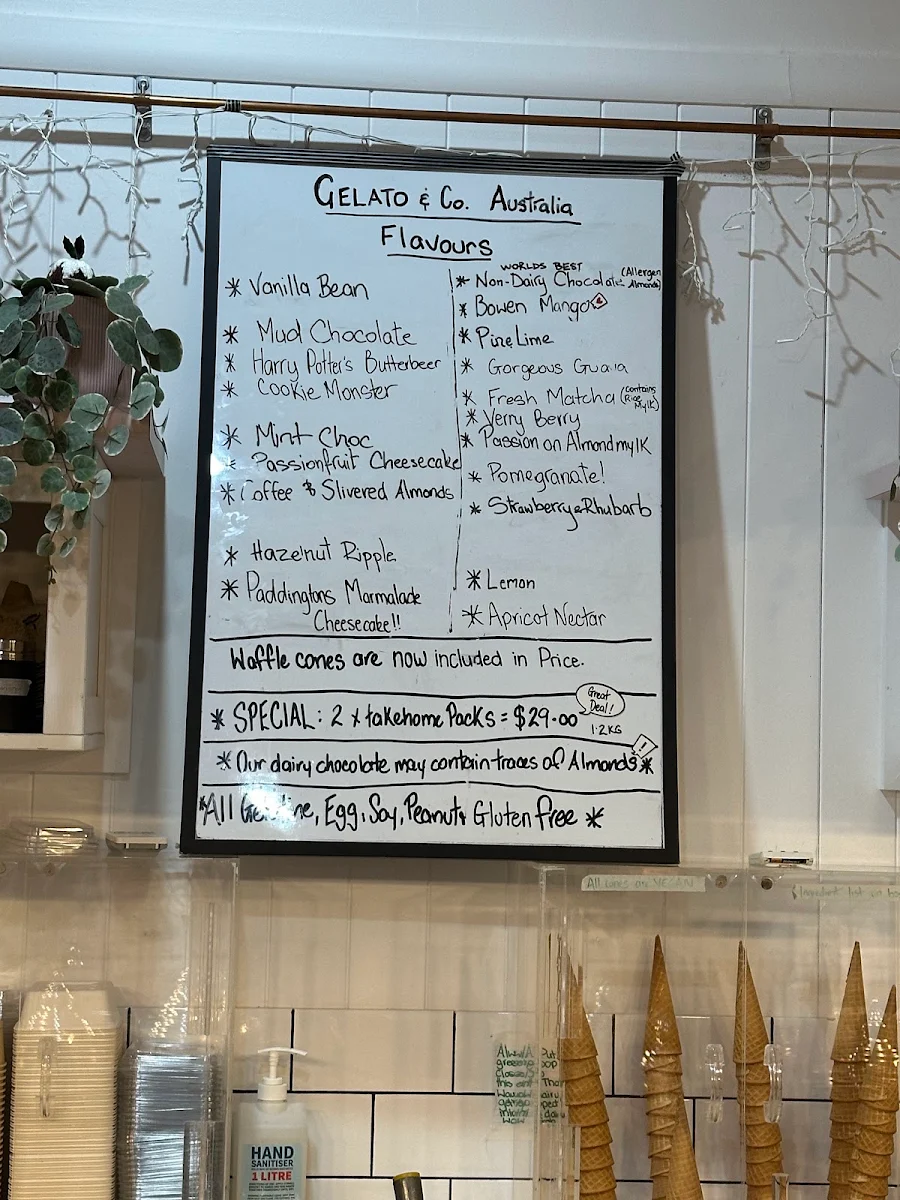 GELATO & Co. Australia
Flavours
* Vanilla Bean
* Mud Chocolate
* Harry Potter's Butterbeer
* Cookie Monster
* Mint Choc
* Passionfruit Cheesecake
* Coffee & Slivered Almonds
* Hazelnut Ripple
* Paddingtons Marmalade
Cheesecake!!
WORLDS BEST
* Non-Dairy Chocolate (Allergen Almonds)
* Bowen Mango
* Pine Lime
* Gorgeous Guava
* Fresh Matcha (contains Rice Mylk)
* Verry Berry
* Passion on Almond mylk
* Pomegranate!
* Strawberry & Rhubarb
* Lemon
* Apricot Nectar
Waffle cones are now included in Price.
* SPECIAL: 2 x takehome Packs = $29.00
Great Deal!
1.2KG
* Our dairy chocolate may contain traces of Almonds *
!
* All Gelatine, Egg, Soy, Peanut & Gluten free *
All cones are VEGAN
Ingredient list on
HAND
SANITISER
1 LITRE